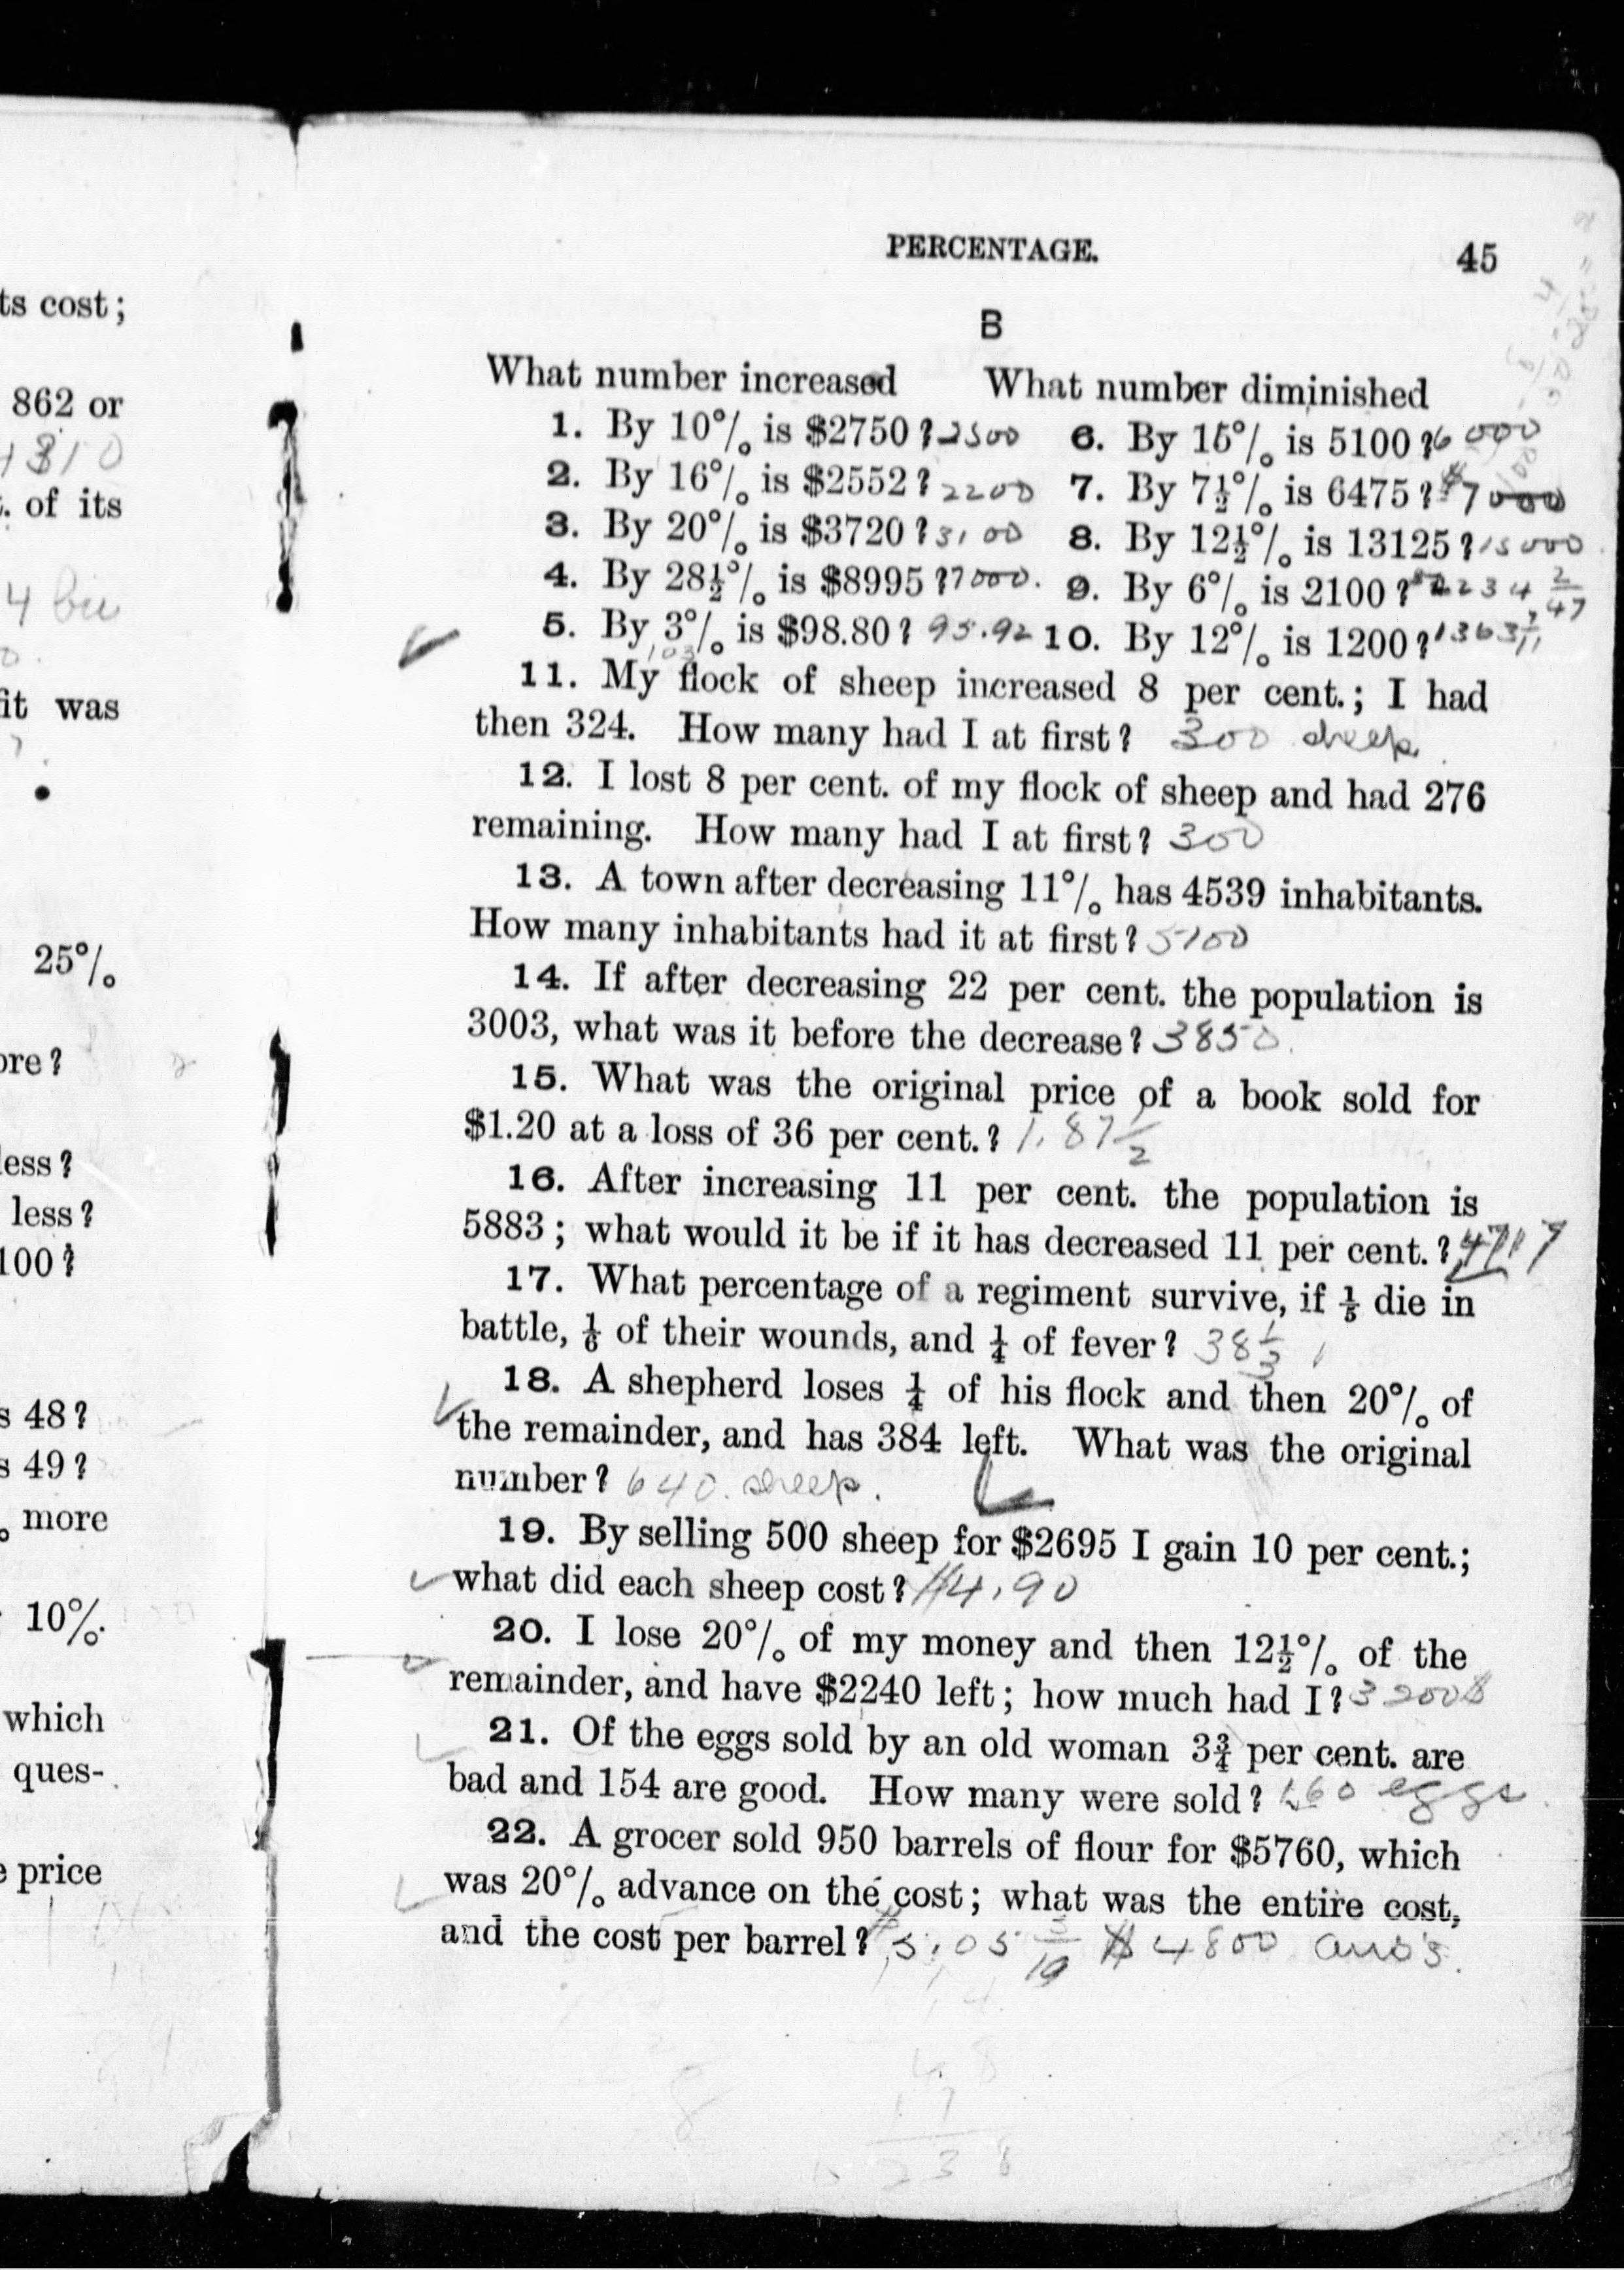 ts cost;
862 or
1310
. of its
4 bu
fit was
25%
ore?
less?
less?
100?
s 48?
s 49?
more
10%.
which
ques-
price
PERCENTAGE. 45
B
What number increased What number diminished
1. By 10% is $2750? 2500 6. By 15% is 5100? 6000
2. By 16% is $2552? 2200 7. By 7½% is 6475? $7000
3. By 20% is $3720? 3100 8. By 12½% is 13125? 15000
4. By 28½% is $8995? 7000. 9. By 6% is 2100? 2234 2/47
5. By 3% is $98.80? 95.92 10. By 12% is 1200? 1363 7/11
103
11. My flock of sheep increased 8 per cent.; I had
then 324. How many had I at first? 300 sheep
12. I lost 8 per cent. of my flock of sheep and had 276
remaining. How many had I at first? 300
13. A town after decreasing 11% has 4539 inhabitants.
How many inhabitants had it at first? 5100
14. If after decreasing 22 per cent. the population is
3003, what was it before the decrease? 3850.
15. What was the original price of a book sold for
$1.20 at a loss of 36 per cent.? 1.87½
16. After increasing 11 per cent. the population is
5883; what would it be if it has decreased 11 per cent.? 4717
17. What percentage of a regiment survive, if ⅕ die in
battle, ⅙ of their wounds, and ¼ of fever? 38⅓
18. A shepherd loses ¼ of his flock and then 20% of
the remainder, and has 384 left. What was the original
number? 640. sheep.
19. By selling 500 sheep for $2695 I gain 10 per cent.;
what did each sheep cost? $4.90
20. I lose 20% of my money and then 12½% of the
remainder, and have $2240 left; how much had I? 3200$
21. Of the eggs sold by an old woman 3¾ per cent. are
bad and 154 are good. How many were sold? 160 eggs
22. A grocer sold 950 barrels of flour for $5760, which
was 20% advance on the cost; what was the entire cost,
and the cost per barrel? $5.05 5/19 $4800 ans.